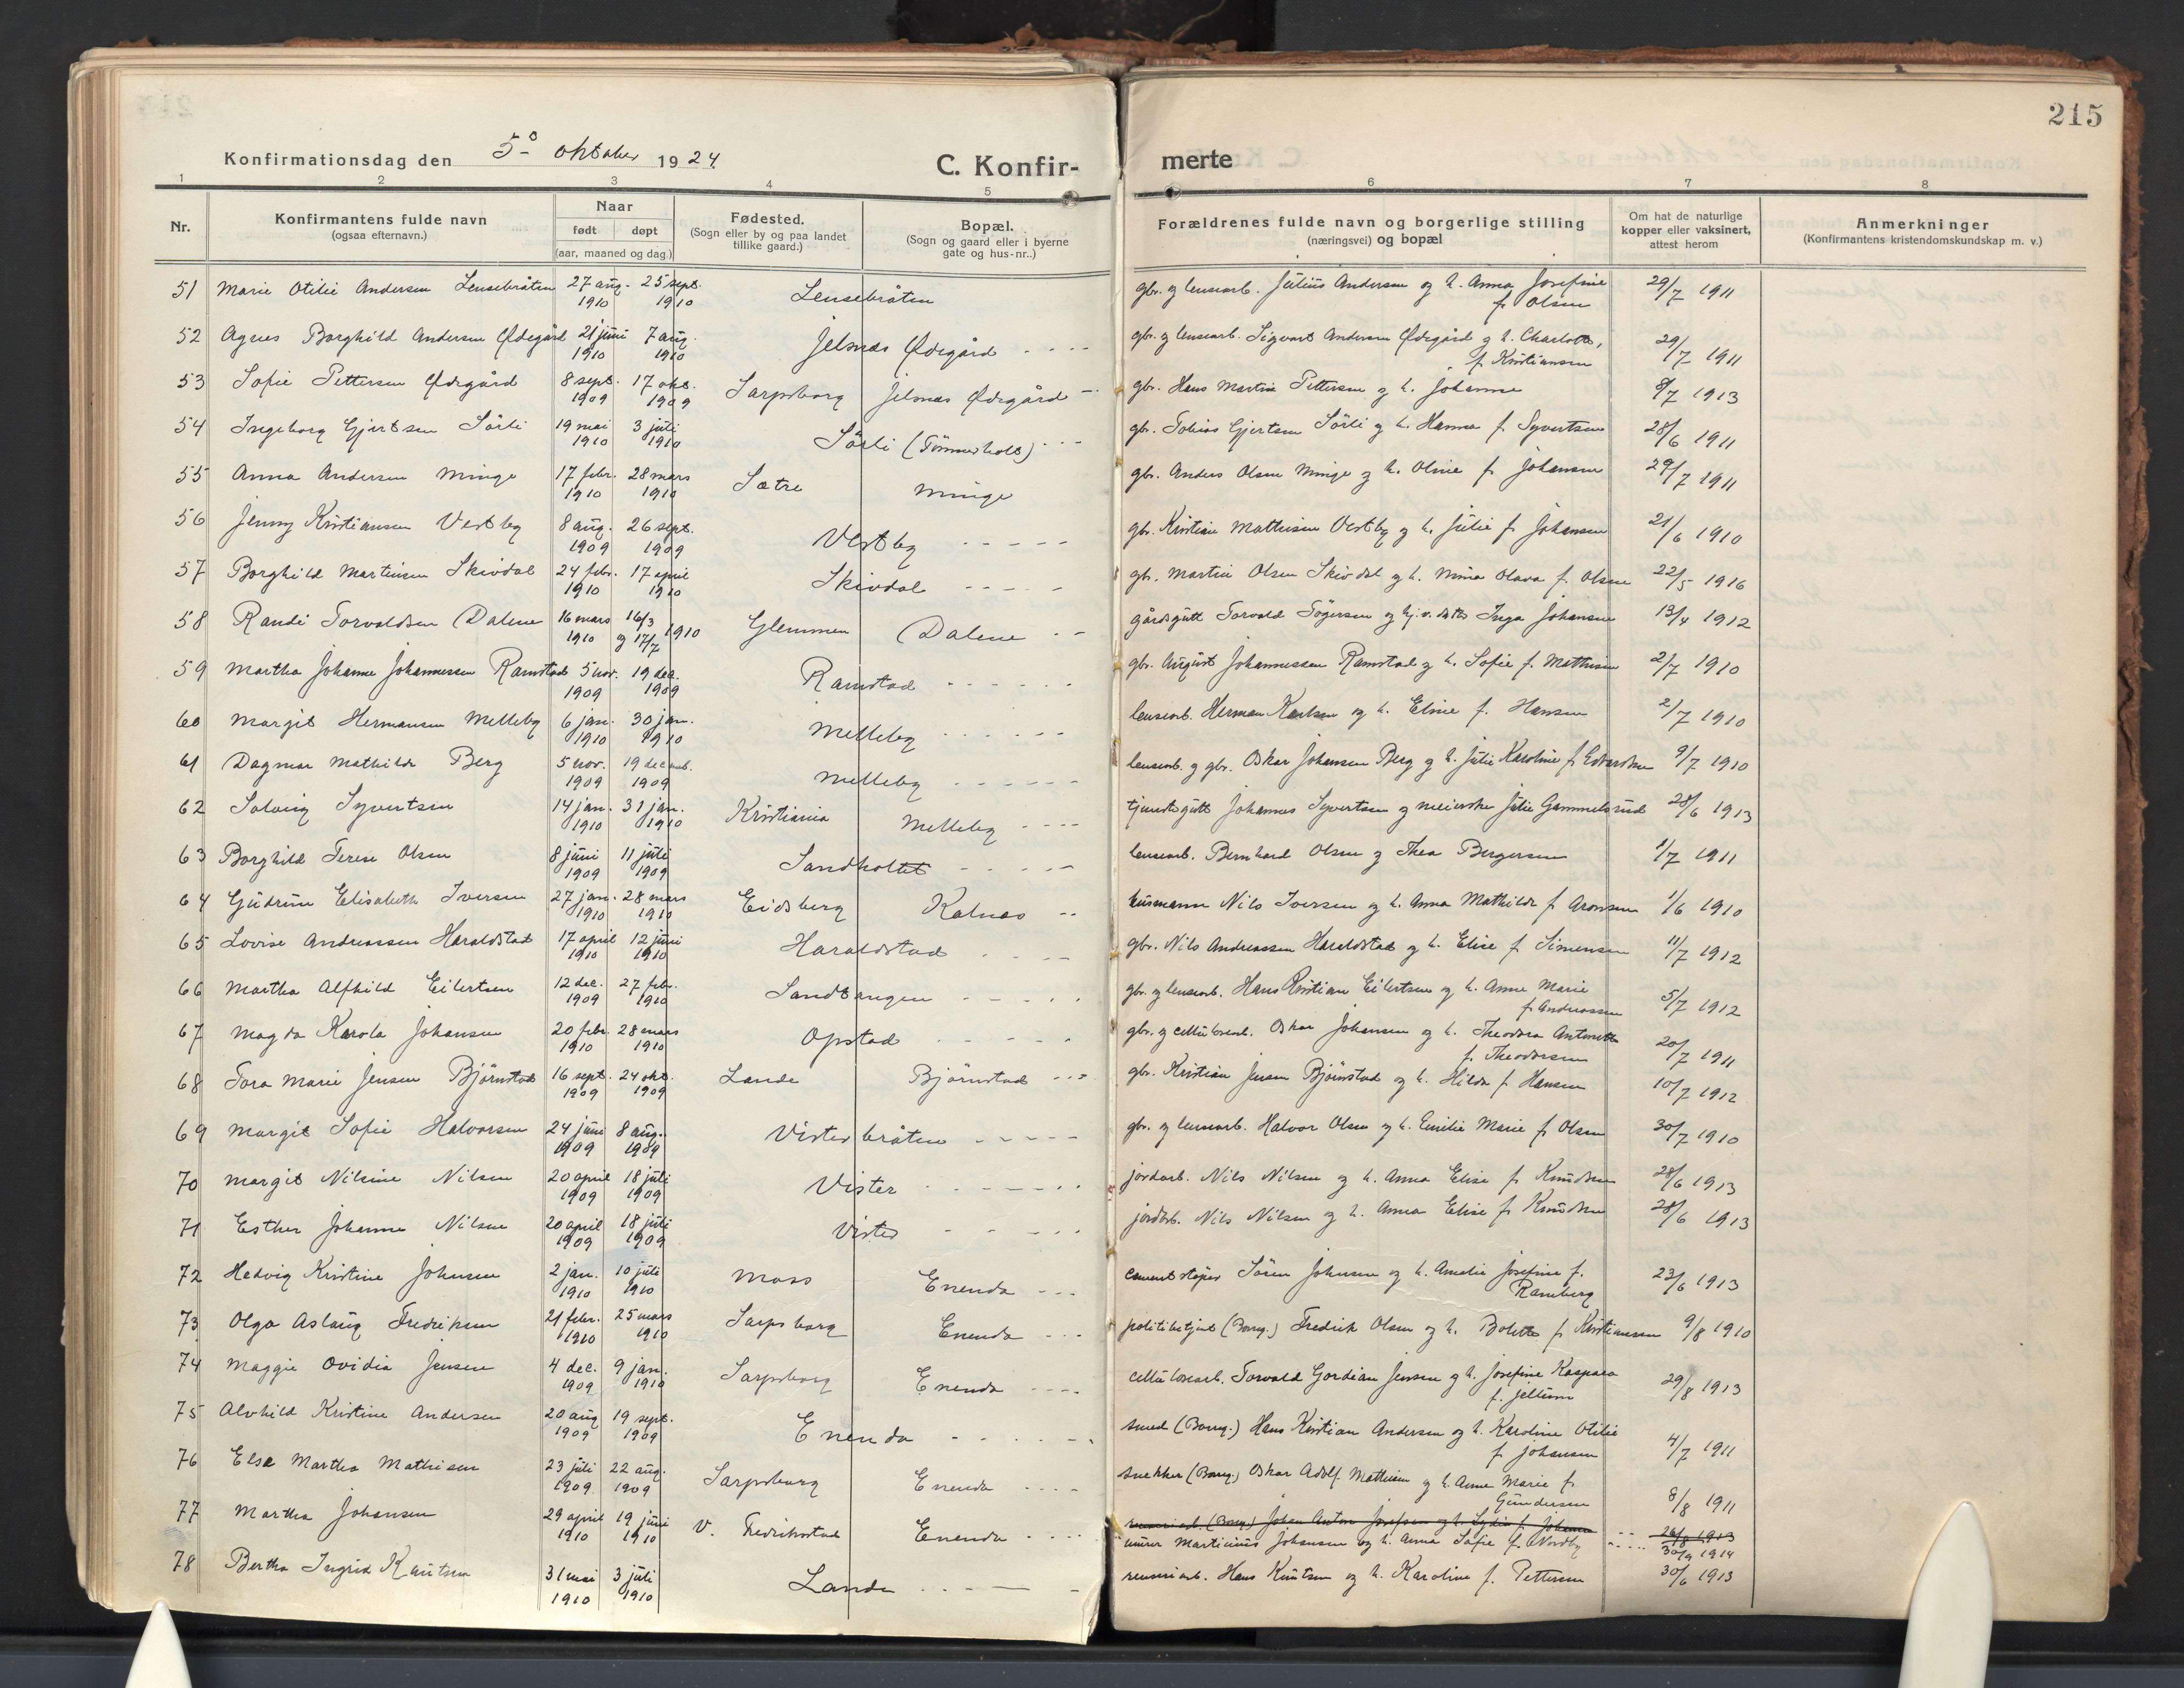 215
Konfirmationsdag den 5º oktober 1924
C. Konfir-
merte
1 2 3 4 5 6 7 8
Nr.
Konfirmantens fulde navn
(ogsaa efternavn.)
Naar
født døpt
(aar, maaned og dag.)
Fødested.
(Sogn eller by og paa landet
tillike gaard.)
Bopæl.
(Sogn og gaard eller i byerne
gate og hus-nr..)
Forældrenes fulde navn og borgerlige stilling
(næringsvei) og bopæl
Om hat de naturlige
kopper eller vaksinert,
attest herom
Anmerkninger
(Konfirmantens kristendomskundskap m. v.)
51 Marie Otilie Andersen Lensebråten 27 aug. 1910 25 sept. 1910 Lensebråten gbr. og lensearb. Julius Andersen og h. Anna Josefine f. Olsen 29/7 1911
52 Agnes Borghild Andersen Ødegård 21 juni 1910 7 aug. 1910 Jelsnæs Ødegård gbr. og lensearb. Sigvart Andersen Ødegård og h. Charlotte, f. Kristiansen 29/7 1911
53 Sofie Pettersen Ødegård 8 sept. 1909 17 okt. 1909 Sarpsborg Jelsnæs Ødegård gbr. Hans Martin Pettersen og h. Johanne 8/7 1913
54 Ingeborg Gjertsen Sörli 19 mai 1910 3 juli 1910 Sörli (Tömmerholt) gbr. Tobias Gjertsen Sörli og h. Hanna f. Syvertsen 28/6 1911
55 Anna Andersen Minge 17 febr. 1910 28 mars 1910 Sætre Minge gbr. Anders Olsen Minge og h. Oline f. Johansen 29/7 1911
56 Jenny Kristiansen Vestby 8 aug. 1909 26 sept. 1909 Vestby gbr. Kristian Mathisen Vestby og h. Julie f. Johansen 21/6 1910
57 Borghild Martinsen Skivdal 24 febr. 1910 17 april 1910 Skivdal gbr. Martin Olsen Skivdal og h. Mina Olava f. Olsen 22/5 1916
58 Randi Torvaldsen Dalene 16 mars 1910 16/3 og 17/7 1910 Glemmen Dalene gårdsgutt Torvald Tögersen og Inga Johansen 13/4 1912
59 Martha Johanne Johannessen Ramstad 5 nov. 1909 19 dec. 1909 Ramstad gbr. August Johannessen Ramstad og h. Sofie f. Mathisen 2/7 1910
60 Margit Hermansen Melleby 6 jan. 1910 30 jan. 1910 Melleby lensearb. Herman Karlsen og h. Eline f. Hansen 2/7 1910
61 Dagmar Mathilde Berg 5 nov. 1909 19 decemb. 1909 Melleby lensearb. og gbr. Oskar Johansen Berg og h. Julie Karoline f. Edvardsen 9/7 1910
62 Solveig Syvertsen 14 jan. 1910 31 jan. 1910 Kristiania Melleby tjenestegutt Johannes Syvertsen og meierske Julie Gammelsrud 28/6 1913
63 Borghild Terese Olsen 8 juni 1909 11 juli 1909 Sandholtet lensearb. Bernhard Olsen og Thea Bergersen 1/7 1911
64 Gudrun Elisabeth Iversen 27 jan. 1910 28 mars 1910 Eidsberg Kalnæs husmann Nils Iversen og h. Anna Mathilde f. Aronsen 1/6 1910
65 Lovise Andreassen Haraldstad 17 april 1910 12 juni 1910 Haraldstad gbr. Nils Andreassen Haraldstad og h. Elise f. Simensen 11/7 1912
66 Martha Alfhild Eilertsen 12 dec. 1909 27 febr. 1910 Sandtangen gbr. og lensearb. Hans Kristian Eilertsen og h. Anne Marie f. Andreassen 5/7 1912
67 Magda Karola Johansen 20 febr. 1910 28 mars 1910 Opstad gbr. og cellulosearb. Oskar Johansen og h. Theodora Antonette f. Theodorsen 20/7 1911
68 Tora Marie Jensen Björnstad 16 sept. 1909 24 okt. 1909 Lande Björnstad gbr. Kristian Jensen Björnstad og h. Hilda f. Hansen 10/7 1912
69 Margit Sofie Halvorsen 24 juni 1909 8 aug. 1909 Visterbråten gbr. og lensearb. Halvor Olsen og h. Emilie Marie f. Olsen 30/7 1910
70 Margit Nilsine Nilsen 20 april 1909 18 juli 1909 Vister jordarb. Nils Nilsen og h. Anna Elise f. Knudsen 28/6 1913
71 Esther Johanne Nilsen 20 april 1909 18 juli 1909 Vister jordarb. Nils Nilsen og h. Anna Elise f. Knudsen 28/6 1913
72 Hedvig Kristine Johnsen 2 jan. 1910 10 juli 1910 Moss Enenda cementstöper Sören Johnsen og h. Amalie Josefine f. Ramberg 23/6 1913
73 Olga Aslaug Fredriksen 21 febr. 1910 25 mars 1910 Sarpsborg Enenda politibetjent (Borreg.) Fredrik Olsen og h. Bolette f. Kristiansen 9/8 1910
74 Maggie Ovidia Jensen 4 dec. 1909 9 jan. 1910 Sarpsborg Enenda cellulosearb. Torvald Gordian Jensen og h. Josefine Kaspara f. Jellum 29/8 1913
75 Alvhild Kristine Andersen 20 aug 1909 19 sept. 1909 Enenda smed (Borreg.) Hans Kristian Andersen og h. Karoline Otilie f. Johansen 4/7 1911
76 Else Martha Mathisen 23 juli 1909 22 aug. 1909 Sarpsborg Enenda snekker (Borreg.) Oskar Adolf Mathisen og h. Anne Marie f. Gundersen 8/8 1911
77 Martha Johansen 29 april 1910 19 juni 1910 V. Fredrikstad Enenda renseriarb. (Borreg.) Johan Anton Josefsen og h. Lydia f. Johansen 26/8 1913
murer Martinius Johansen og h. Anna Sofie f. Nordby 30/9 1914
78 Bertha Ingrid Knutsen 31 mai 1910 3 juli 1910 Lande renseriarb. Hans Knutsen og h. Karoline f. Pettersen 30/6 1913